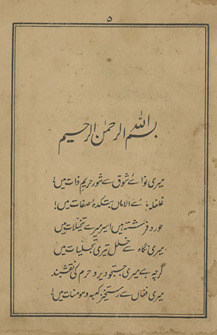 ۵
بسم اللہ الرحمٰن الرحیم
میری نوائے شوق سے شور حریم ذات میں!
غلغلہ ہائے الاماں بتکدۂ صفات میں!
حور و فرشتہ ہیں اسیر میرے تخیلات میں!
میری نگاہ سے خلل تیری تجلیات میں!
گرچہ ہے میری جستجو دیر و حرم کی نقشبند
میری فغاں سے رستخیز کعبہ و سومنات میں!